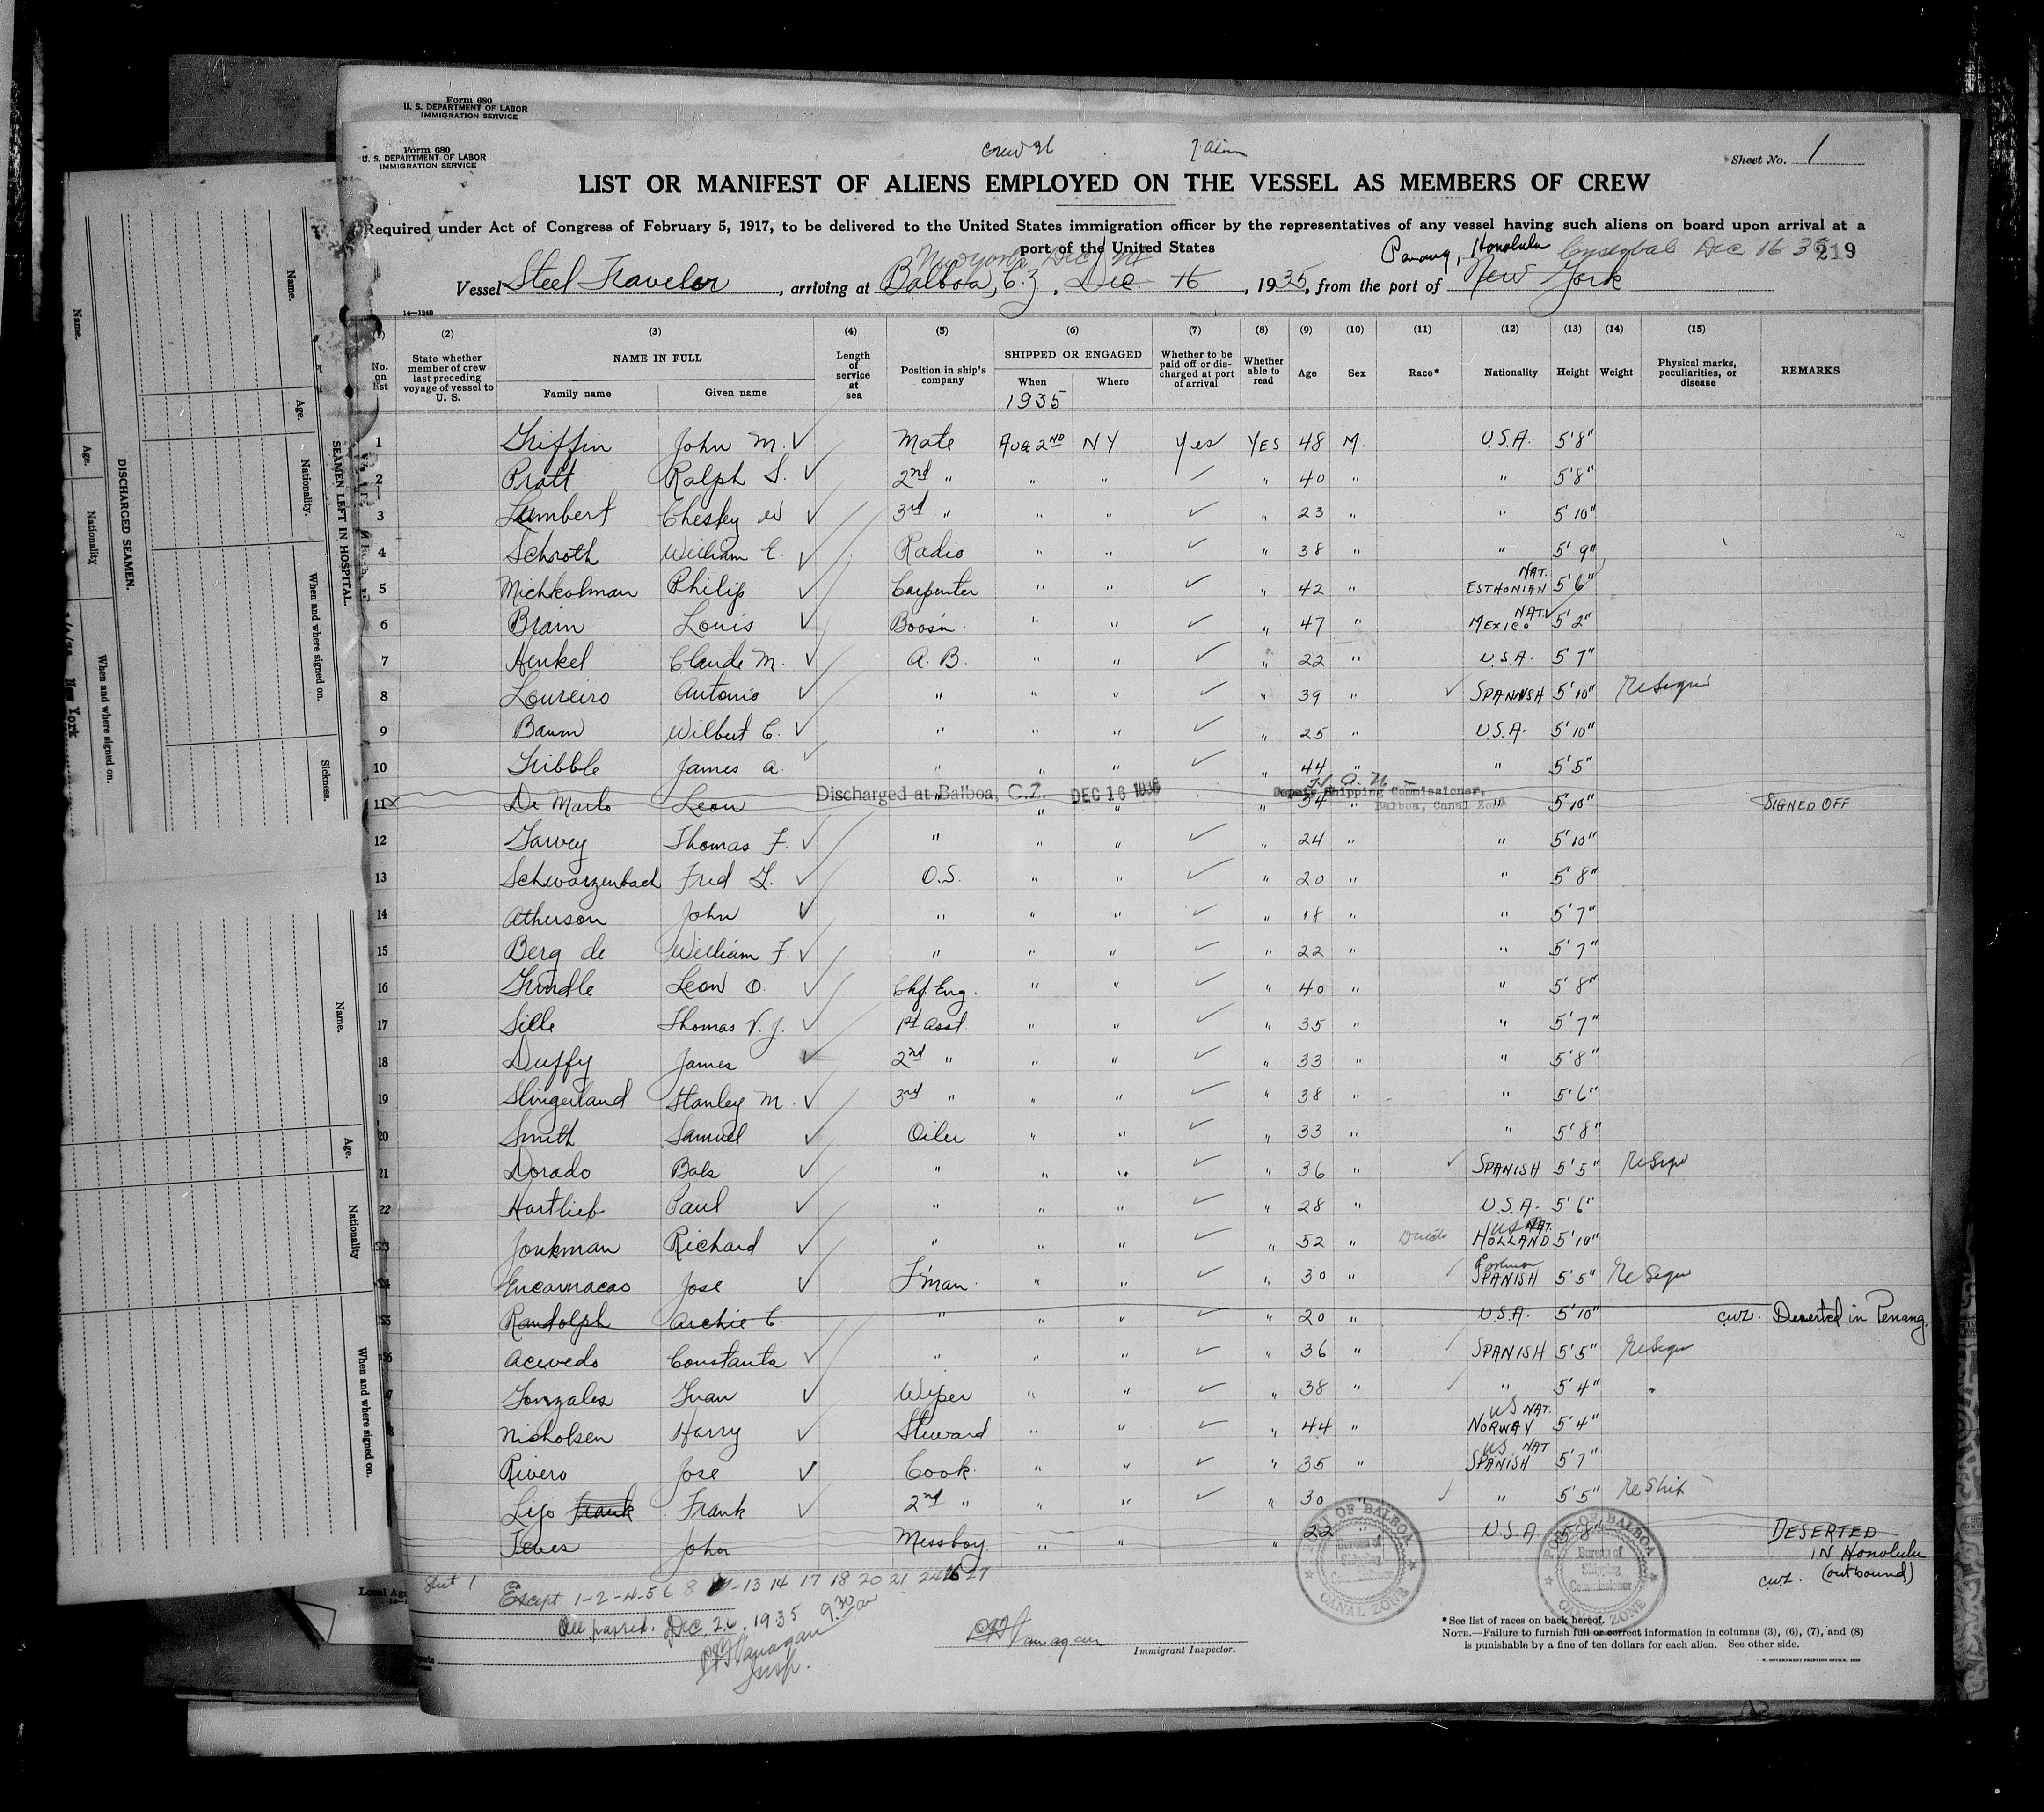 Form 680
U. S. DEPARTMENT OF LABOR
IMMIGRATION SERVICE
Form 680
U. S. DEPARTMENT OF LABOR
IMMIGRATION SERVICE
Sheet No. 1
LIST OR MANIFEST OF ALIENS EMPLOYED ON THE VESSEL AS MEMBERS OF CREW
Required under Act of Congress of February 5, 1917, to be delivered to the United States immigration officer by the representatives of any vessel having such aliens on board upon arrival at a
port of the United States
Penang, Honolulu Dec 16 35 219
Vessel Steel Traveler, arriving at Balboa, C.Z., Dec 16, 1935, from the port of New York
14—1240
(1) (2) (3) (4) (5) (6) (7) (8) (9) (10) (11) (12) (13) (14) (15)
No. on list State whether member of crew last preceding voyage of vessel to U. S. NAME IN FULL Family name Given name Length of service at sea Position in ship's company SHIPPED OR ENGAGED When Where Whether to be paid off or discharged at port of arrival Whether able to read Age Sex Race* Nationality Height Weight Physical marks, peculiarities, or disease REMARKS
1935
1 Griffin John M. Mate Aug 2ND NY Yes YES 48 M. U.S.A. 5'8"
2 Pratt Ralph S. 2nd " " " " 40 " " 5'8"
3 Lumbert Chesley W 3rd " " " " 23 " " 5'10"
4 Schroth William E. Radio " " " 38 " " 5'9"
5 Michkolman Philip Carpenter " " " 42 " NAT. ESTHONIAN 5'6"
6 Brain Louis Boosn " " " 47 " NAT. MEXICO 5'2"
7 Henkel Claude M. A.B. " " " 22 " U.S.A. 5'7"
8 Loureiro Antonio " " " " 39 " SPANISH 5'10"
9 Baum Wilbert C. " " " " 25 " U.S.A. 5'10"
10 Tribble James A. " " " " 44 " " 5'5"
11 De Marlo Leon Discharged at Balboa, C.Z. DEC 16 1935 34 Deputy Shipping Commissioner, Balboa, Canal Zone " 5'10" SIGNED OFF
12 Garvey Thomas F. " " " " 24 " " 5'10"
13 Schwarzenbach Fred O.S. " " " 20 " " 5'8"
14 Atherson John " " " " 18 " " 5'7"
15 Berg de William F. " " " " 22 " " 5'7"
16 Grindle Leon O. Chf. Eng. " " " 40 " " 5'8"
17 Thomas V. J. 1st Asst " " " 35 " " 5'7"
18 Duffy James 2nd " " " " 33 " " 5'8"
19 Slingerland Stanley M. 3rd " " " " 38 " " 5'6"
20 Smith Samuel Oiler " " " 33 " " 5'8"
21 Dorado Bals " " " " 36 " SPANISH 5'5"
22 Hartlieb Paul " " " " 28 " U.S.A. 5'6"
Jonkman Richard " " " " 52 " US NAT. HOLLAND 5'10"
Encarnacao Jose F'man. " " " 30 " SPANISH 5'5"
Randolph Archie C. " " " " 20 " U.S.A. 5'10" Deserted in Penang.
Acevedo Constanta " " " " 36 " SPANISH 5'5"
Gonzales Juan Wiper " " " 38 " " 5'4"
Nicholsen Harry Steward " " " 44 " US NAT. NORWAY 5'4"
Rivero Jose Cook " " " 35 " US NAT SPANISH 5'7"
Lijo Frank Frank 2nd " " " " 30 " " 5'5" Reship
John Messboy " " " 22 " U.S.A. 5'8" DESERTED IN Honolulu (outbound)
PORT OF BALBOA
Bureau of Shipping Commissioner
CANAL ZONE
PORT OF BALBOA
Bureau of Shipping Commissioner
CANAL ZONE
Sheet 1
Except 1-2-4-5 6 8 13 14 17 18 20 21
All passed. Dec. 26. 1935 9.30 am
Flanagan
Insp.
Flanagan
Immigrant Inspector.
*See list of races on back hereof.
NOTE.—Failure to furnish full or correct information in columns (3), (6), (7), and (8)
is punishable by a fine of ten dollars for each alien. See other side.
DISCHARGED SEAMEN.
Name. Age. Nationality When and where signed on.
New York
SEAMEN LEFT IN HOSPITAL.
Name. Age. Nationality. When and where signed on. Sickness.
Name. Age. Nationality When and where signed on.